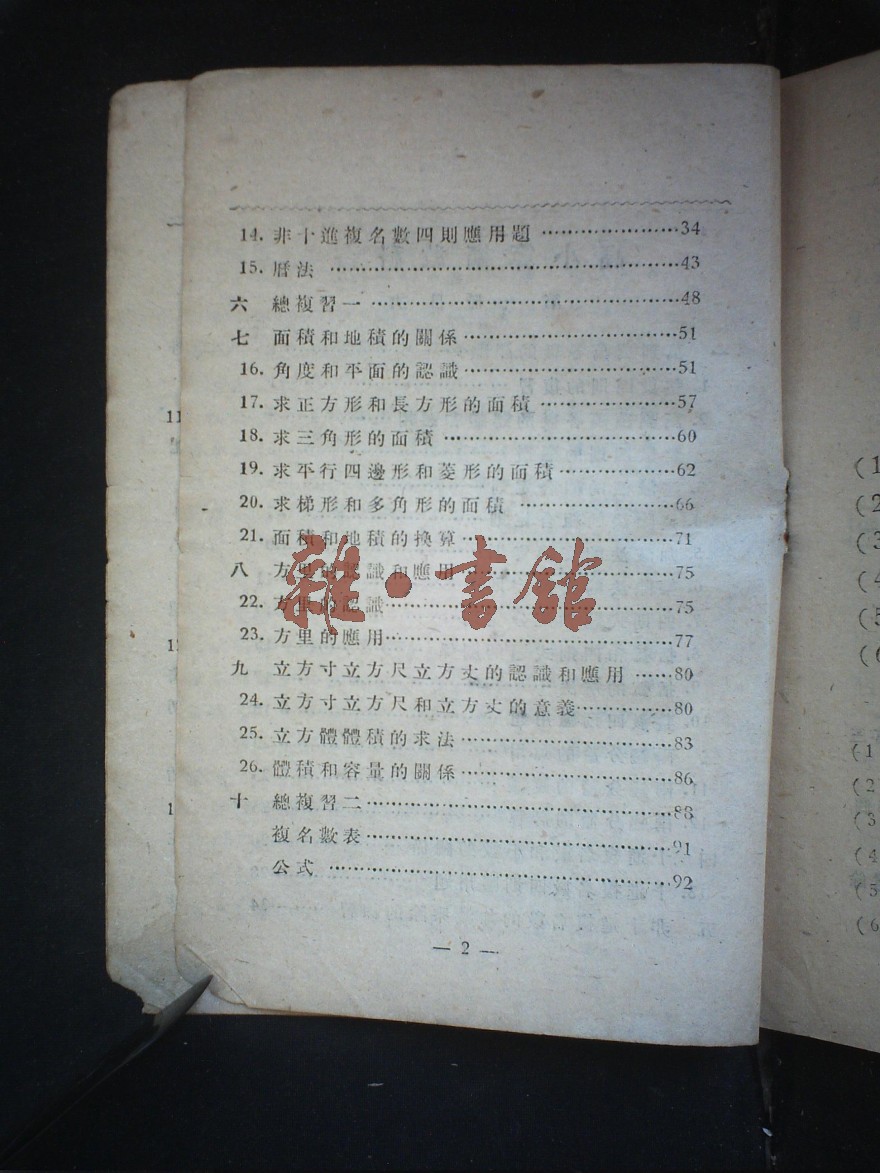 14. 非十進複名數四則應用題 …………………34
15. 曆法 ………………………………………43
六 總複習一 …………………………………48
七 面積和地積的關係 …………………………51
16. 角度和平面的認識 …………………………51
17. 求正方形和長方形的面積 …………………57
18. 求三角形的面積 ……………………………60
19. 求平行四邊形和菱形的面積 ………………62
20. 求梯形和多角形的面積 ……………………66
21. 面積和地積的換算 …………………………71
八 方里的認識和應用 …………………………75
22. 方里的認識 …………………………………75
23. 方里的應用 …………………………………77
九 立方寸立方尺立方丈的認識和應用 ……80
24. 立方寸立方尺和立方丈的意義 ……………80
25. 立方體體積的求法 …………………………83
26. 體積和容量的關係 …………………………86
十 總複習二 …………………………………88
複名數表 ………………………………………91
公式 ……………………………………………92
— 2 —
雜·書館
11
12
1
(1
(2
(3
(4
(5
(6
(1
(2
(3
(4
(5
(6